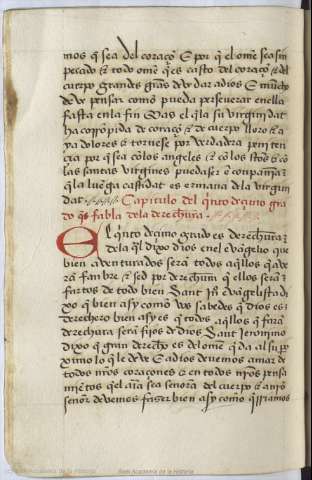 mos q̃ sea del coraçõ E por q̃ el ome sea sin
pecado ⁊ todo ome q̃ es casto del coraçõ ⁊ del
cuerpo grandes grãs deue dar a dios E mucho
deue pensar como pueda perseuerar enella
fasta en la fin Mas el q̃ la su virginidat
ha corrõpida de coraçõ ⁊ de cuerpo llore ⁊ a
ya dolores ⁊ tornese por verdadera peniten
cia por q̃ sea cõ los angeles ⁊ cõ los stõs ⁊ cõ
las santas virgines pueda ser ẽ conpannia
q̃ la luẽga castidat es ermana dela virgini
dat Capitulo del q̃nto deçimo gra
do q̃s fabla dela derechura
El q̃nto deçimo grado es derechura
dela q̃l dixo dios enel euãgelio que
bien auenturados serã todos aq̃llos q̃ aue
rã fanbre ⁊ sed por derechura q̃ ellos serã
fartos de todo bien Sant Iuã euãgelista di
xo q̃ bien asy como vos sabedes q̃ dios es
derechero bien asy es q̃ todos aq̃llos q̃ farã
derechura serã fijos de dios Sant Jeronimo
dixo q̃ gran derecho es del ome q̃ da al su pro
ximo lo q̃ le deue E a dios deuemos amar de
todos nr̃os coraçones ⁊ en todos nr̃os pensa
miẽtos q̃ el aĩa sea señora del cuerpo ⁊ a nr̃o
señor deuemos fazer bien asy como q̃rriamos
Real Academia de la Historia